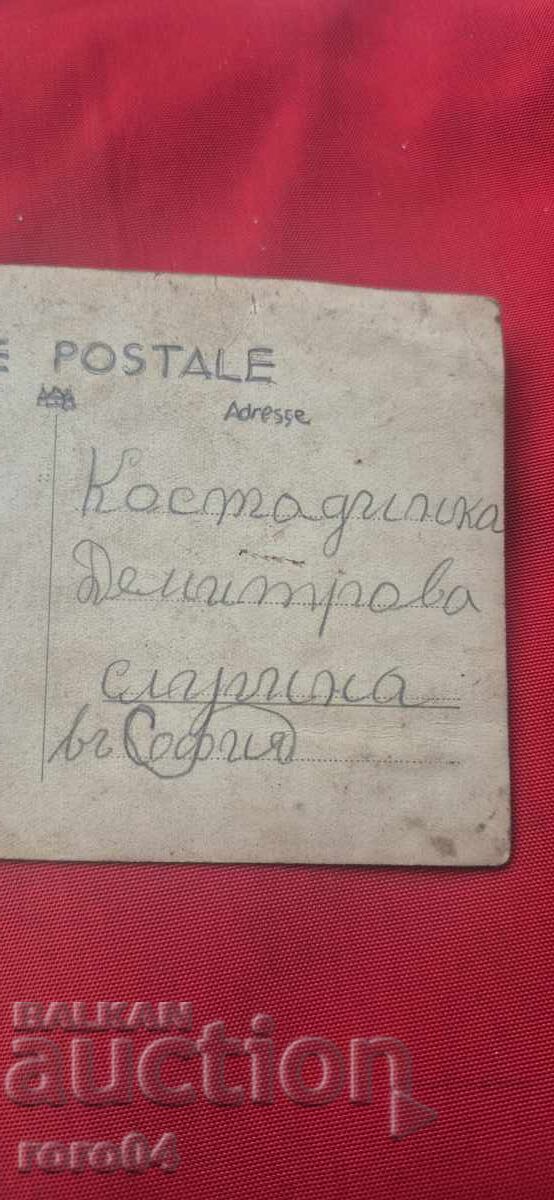 E POSTALE
Adresse
Костадинка
Демитрова
въ София
BALKAN
auction
roro04